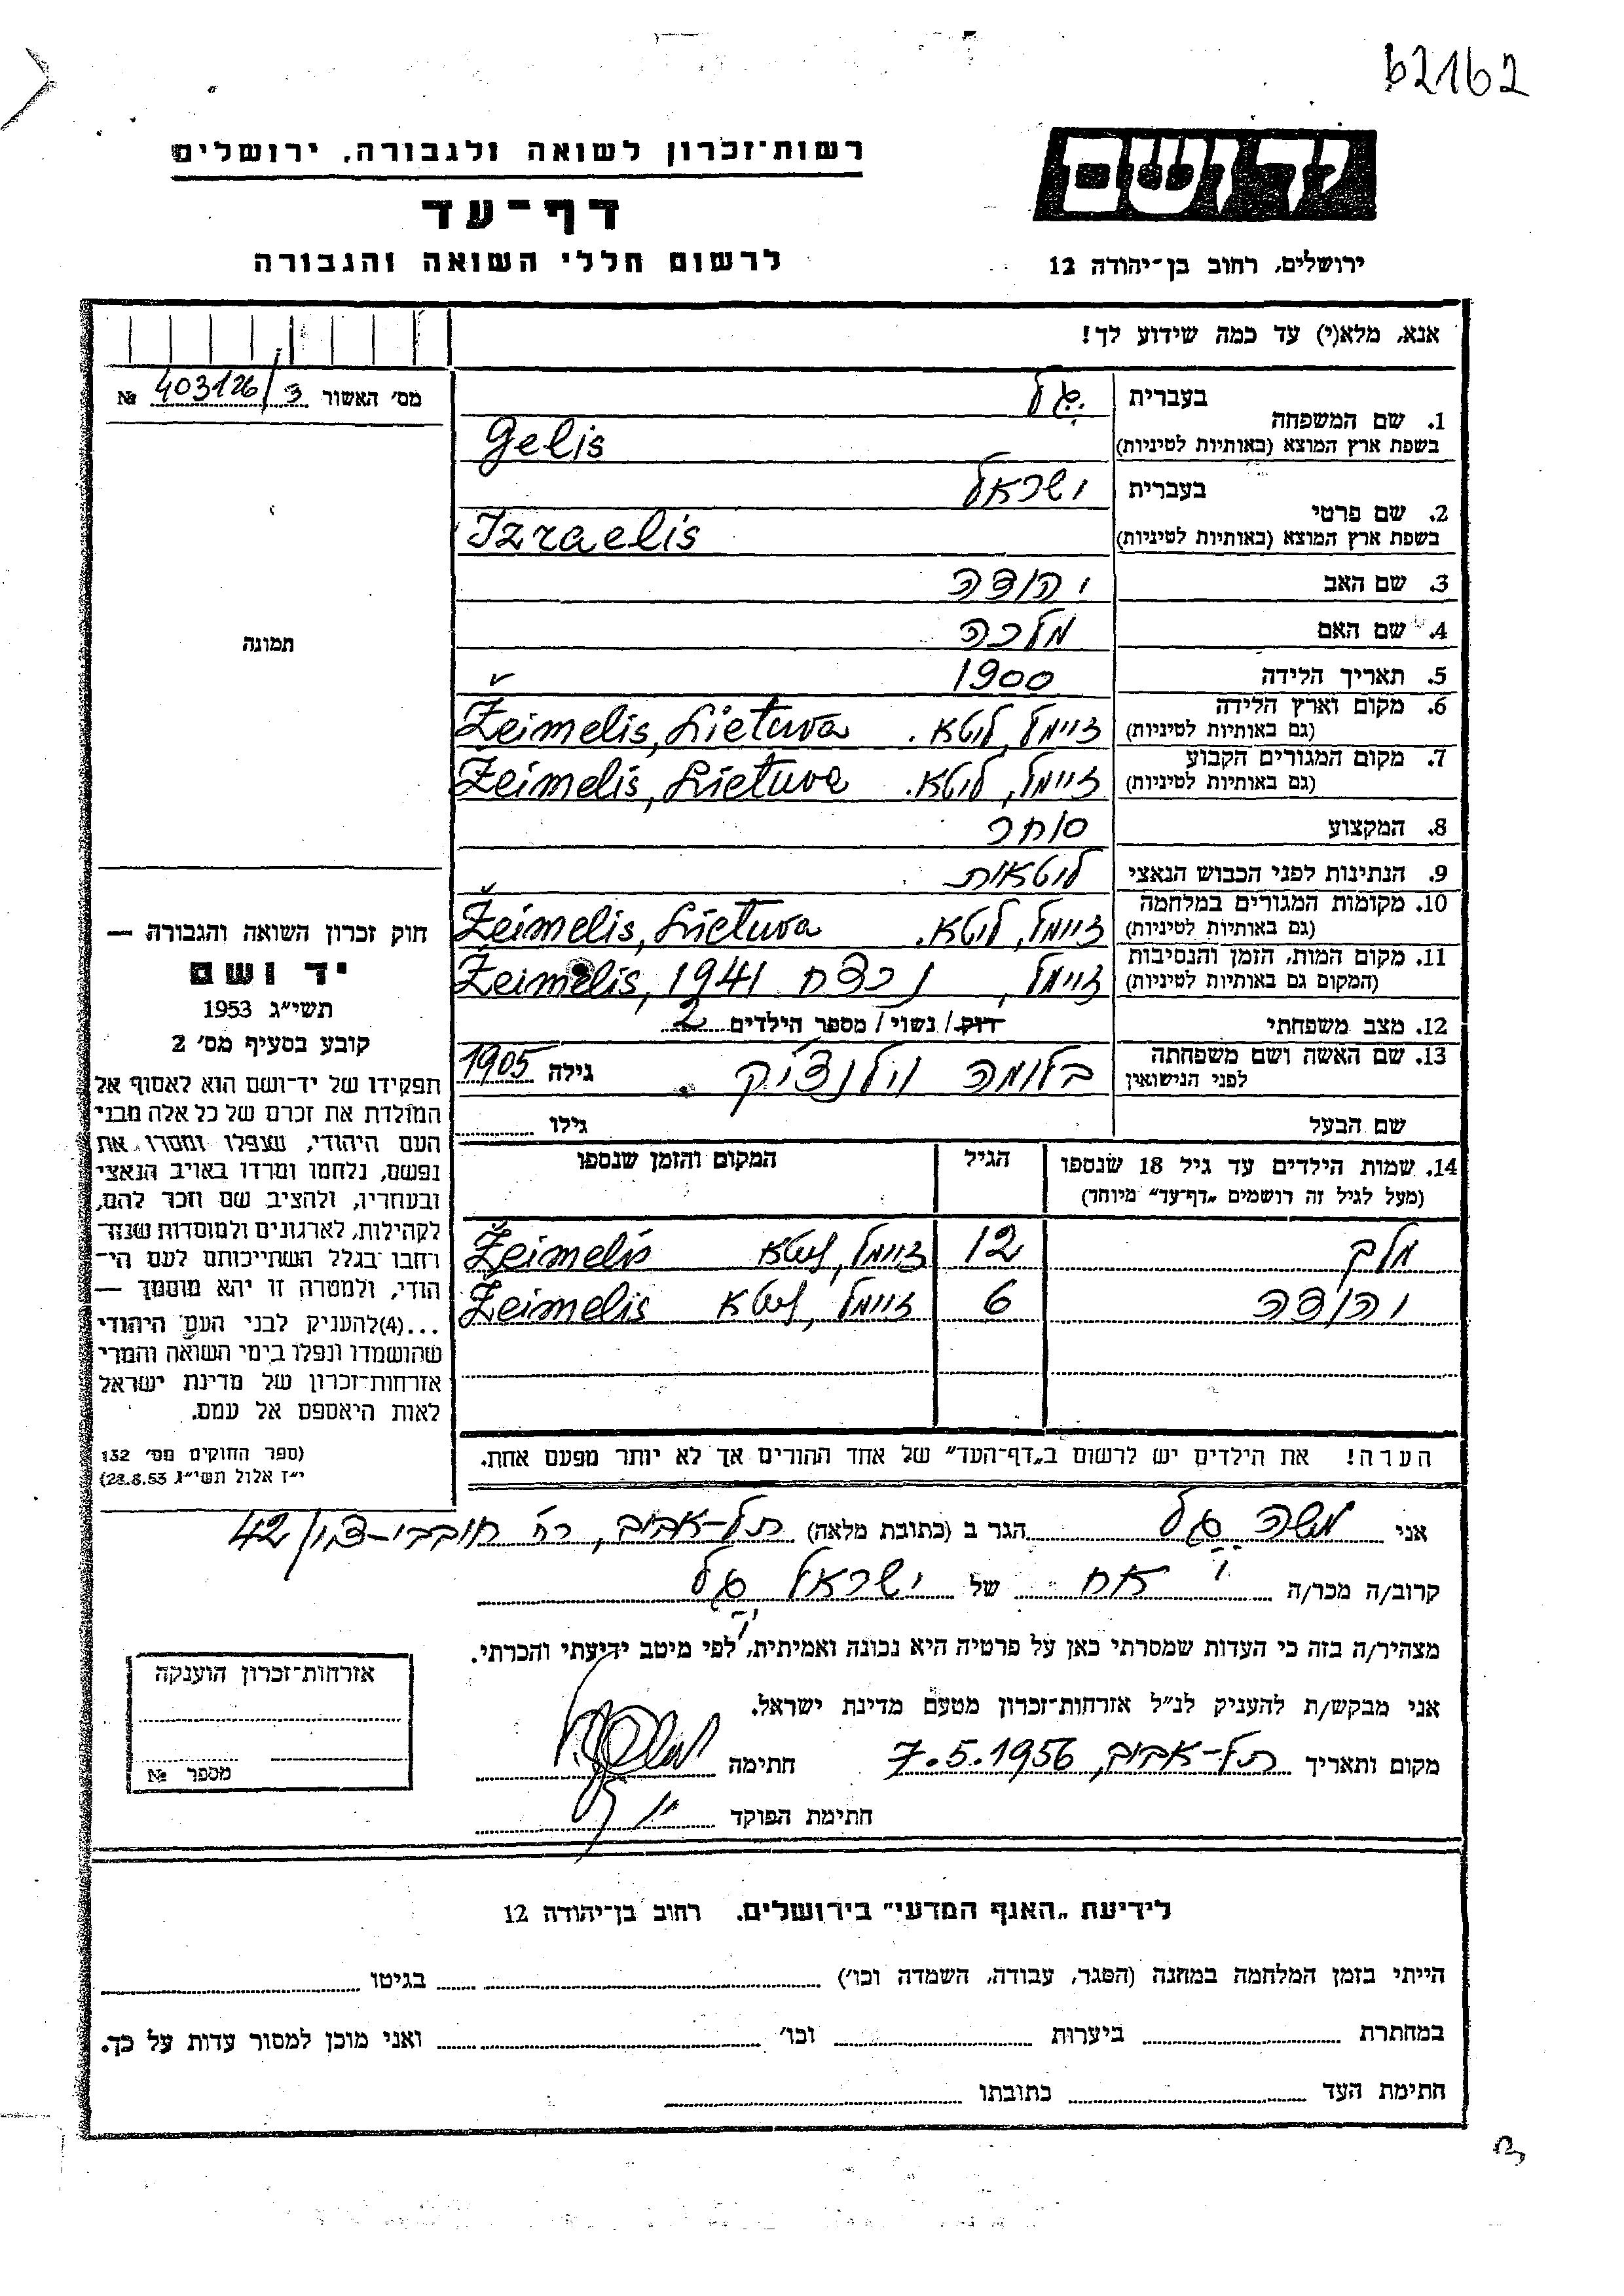 62162
רשות־זכרון לשואה ולגבורה, ירושלים
דף־עד
לרשום חללי השואה והגבורה
יד ושם
ירושלים, רחוב בן־יהודה 12
אנא, מלא(י) עד כמה שידוע לך!
מס' האשור № 403126/3
1. שם המשפחה בעברית גל
בשפת ארץ המוצא (באותיות לטיניות) Gelis
2. שם פרטי בעברית ישראל
בשפת ארץ המוצא (באותיות לטיניות) Izraelis
3. שם האב יהודה
4. שם האם מלכה
5. תאריך הלידה 1900
6. מקום וארץ הלידה (גם באותיות לטיניות) זיימל, ליטא. Žeimelis, Lietuva
7. מקום המגורים הקבוע (גם באותיות לטיניות) זיימל, ליטא. Žeimelis, Lietuva
8. המקצוע סוחר
9. הנתינות לפני הכבוש הנאצי ליטאית
10. מקומות המגורים במלחמה (גם באותיות לטיניות) זיימל, ליטא. Žeimelis, Lietuva
11. מקום המות, הזמן והנסיבות (המקום גם באותיות לטיניות) זיימל, נרצח Žeimelis, 1941
12. מצב משפחתי רוק/ נשוי/ מספר הילדים 2
13. שם האשה ושם משפחתה לפני הנישואין בלומה וילנצ'יק גילה 1905
שם הבעל גילו
14. שמות הילדים עד גיל 18 שנספו (מעל לגיל זה רושמים "דף־עד" מיוחד) הגיל המקום והזמן שנספו
מלך 12 זיימל, ליטא Žeimelis
יהודה 6 זיימל, ליטא Žeimelis
הערה! את הילדים יש לרשום ב"דף־העד" של אחד ההורים אך לא יותר מפעם אחת.
תמונה
חוק זכרון השואה והגבורה —
יד ושם
תשי"ג 1953
קובע בסעיף מס' 2
תפקידו של יד־ושם הוא לאסוף אל
המולדת את זכרם של כל אלה מבני
העם היהודי, שנפלו ומסרו את
נפשם, נלחמו ומרדו באויב הנאצי
ובעוזריו, ולהציב שם וזכר להם,
לקהילות, לארגונים ולמוסדות שנח־
רבו בגלל השתייכותם לעם הי־
הודי, ולמטרה זו יהא מוסמך —
...(4)להעניק לבני העם היהודי
שהושמדו ונפלו בימי השואה והמרי
אזרחות־זכרון של מדינת ישראל
לאות היאספם אל עמם.
(ספר החוקים מס' 132
י"ז אלול תשי"ג 28.8.53)
אני משה גל הגר ב (כתובת מלאה) תל-אביב, רח' חובבי-ציון 42
קרוב/ה מכר/ה אח של ישראל גל
מצהיר/ה בזה כי העדות שמסרתי כאן על פרטיה היא נכונה ואמיתית, לפי מיטב ידיעתי והכרתי.
אני מבקש/ת להעניק לנ"ל אזרחות־זכרון מטעם מדינת ישראל.
מקום ותאריך תל-אביב, 7.5.1956 חתימה
חתימת הפוקד
אזרחות־זכרון הוענקה
מספר №
לידיעת "האגף המדעי" בירושלים. רחוב בן־יהודה 12
הייתי בזמן המלחמה במחנה (הסגר, עבודה, השמדה וכו') בגיטו
במחתרת ביערות וכו' ואני מוכן למסור עדות על כך.
חתימת העד כתובתו